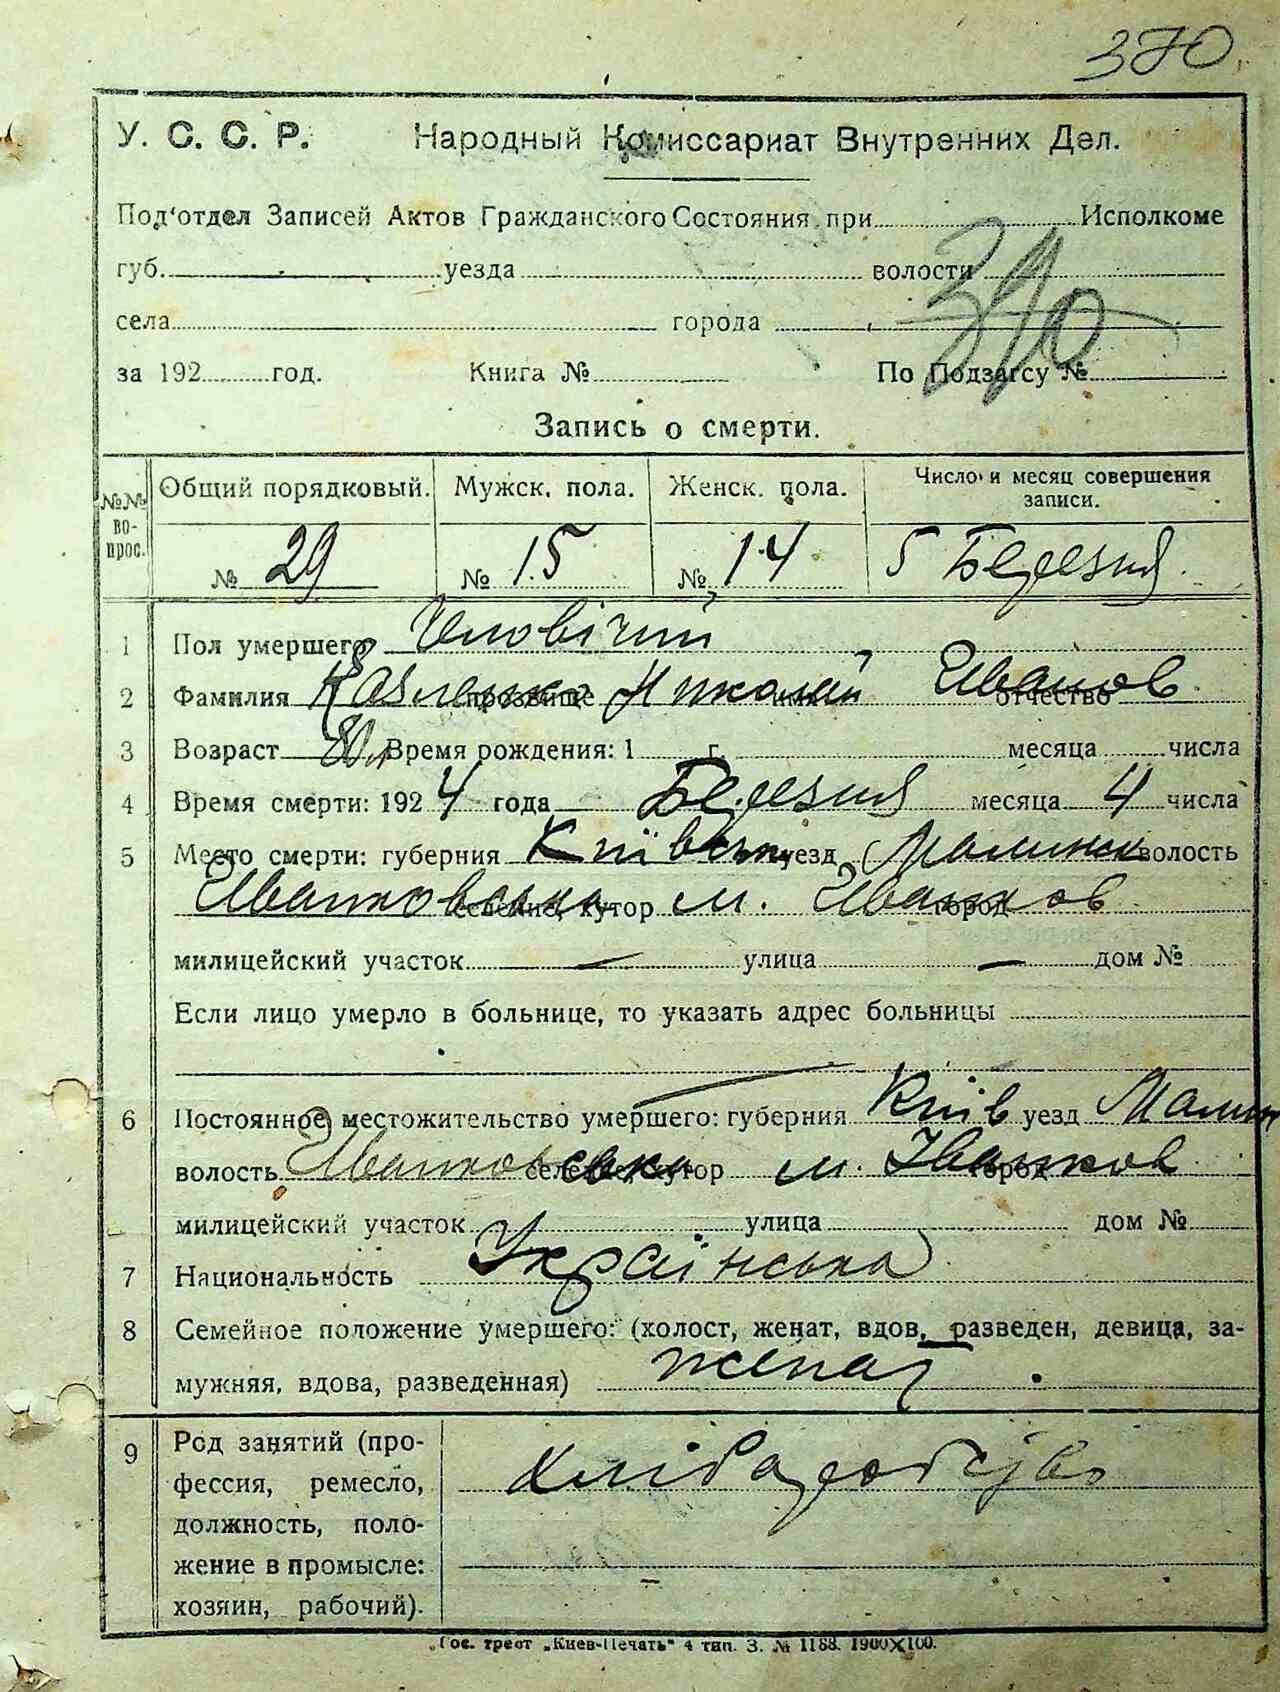 370.
У. С. С. Р. Народный Комиссариат Внутренних Дел.
Под'отдел Записей Актов Гражданского Состояния при Исполкоме
губ. уезда волости
390
села города
за 192 год. Книга № По Подзагсу №
Запись о смерти.
№№ вопрос. Общий порядковый. Мужск. пола. Женск. пола. Число и месяц совершения записи.
№ 29 № 15 № 14 5 Березня
1 Пол умершего Чоловічий
2 Фамилия прозвище Николай имя Иванов отчество
3 Возраст 80 л Время рождения: 1 г. месяца числа
4 Время смерти: 1924 года Березня месяца 4 числа
5 Место смерти: губерния Київськ уезд Малинськ волость
Иванковська селение, хутор м. Иванков город
милицейский участок — улица — дом №
Если лицо умерло в больнице, то указать адрес больницы
6 Постоянное местожительство умершего: губерния Київ уезд Малин
волость Иванковська селение, хутор м. Іванков город
милицейский участок улица дом №
7 Национальность Українська
8 Семейное положение умершего: (холост, женат, вдов, разведен, девица, за-
мужняя, вдова, разведенная) женат.
9 Род занятий (про-
фессия, ремесло,
должность, поло-
жение в промысле:
хозяин, рабочий).
Гос. трест „Киев-Печать" 4 тип. З. № 1188. 1900X100.